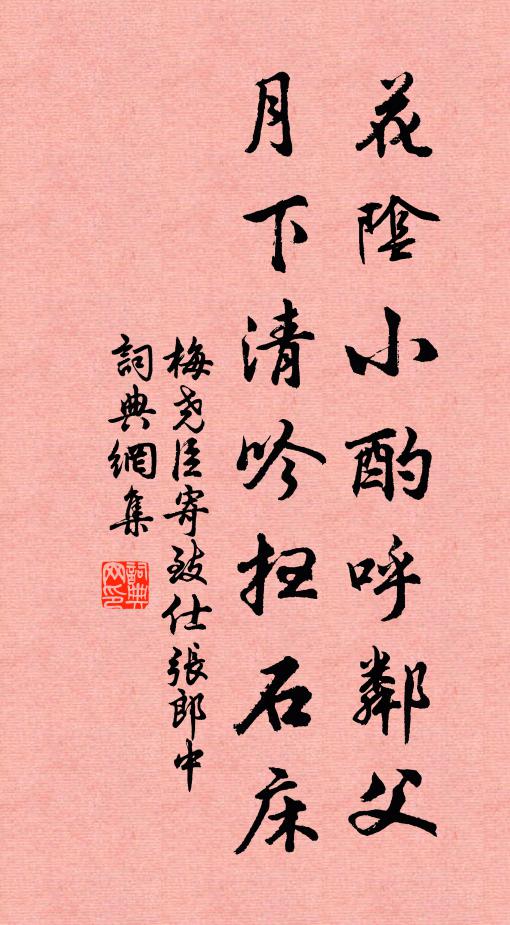 花陰小酌呼鄰父
月下清吟扫石床
梅尧臣寄致仕張郎中
詞典網集
詞典网印